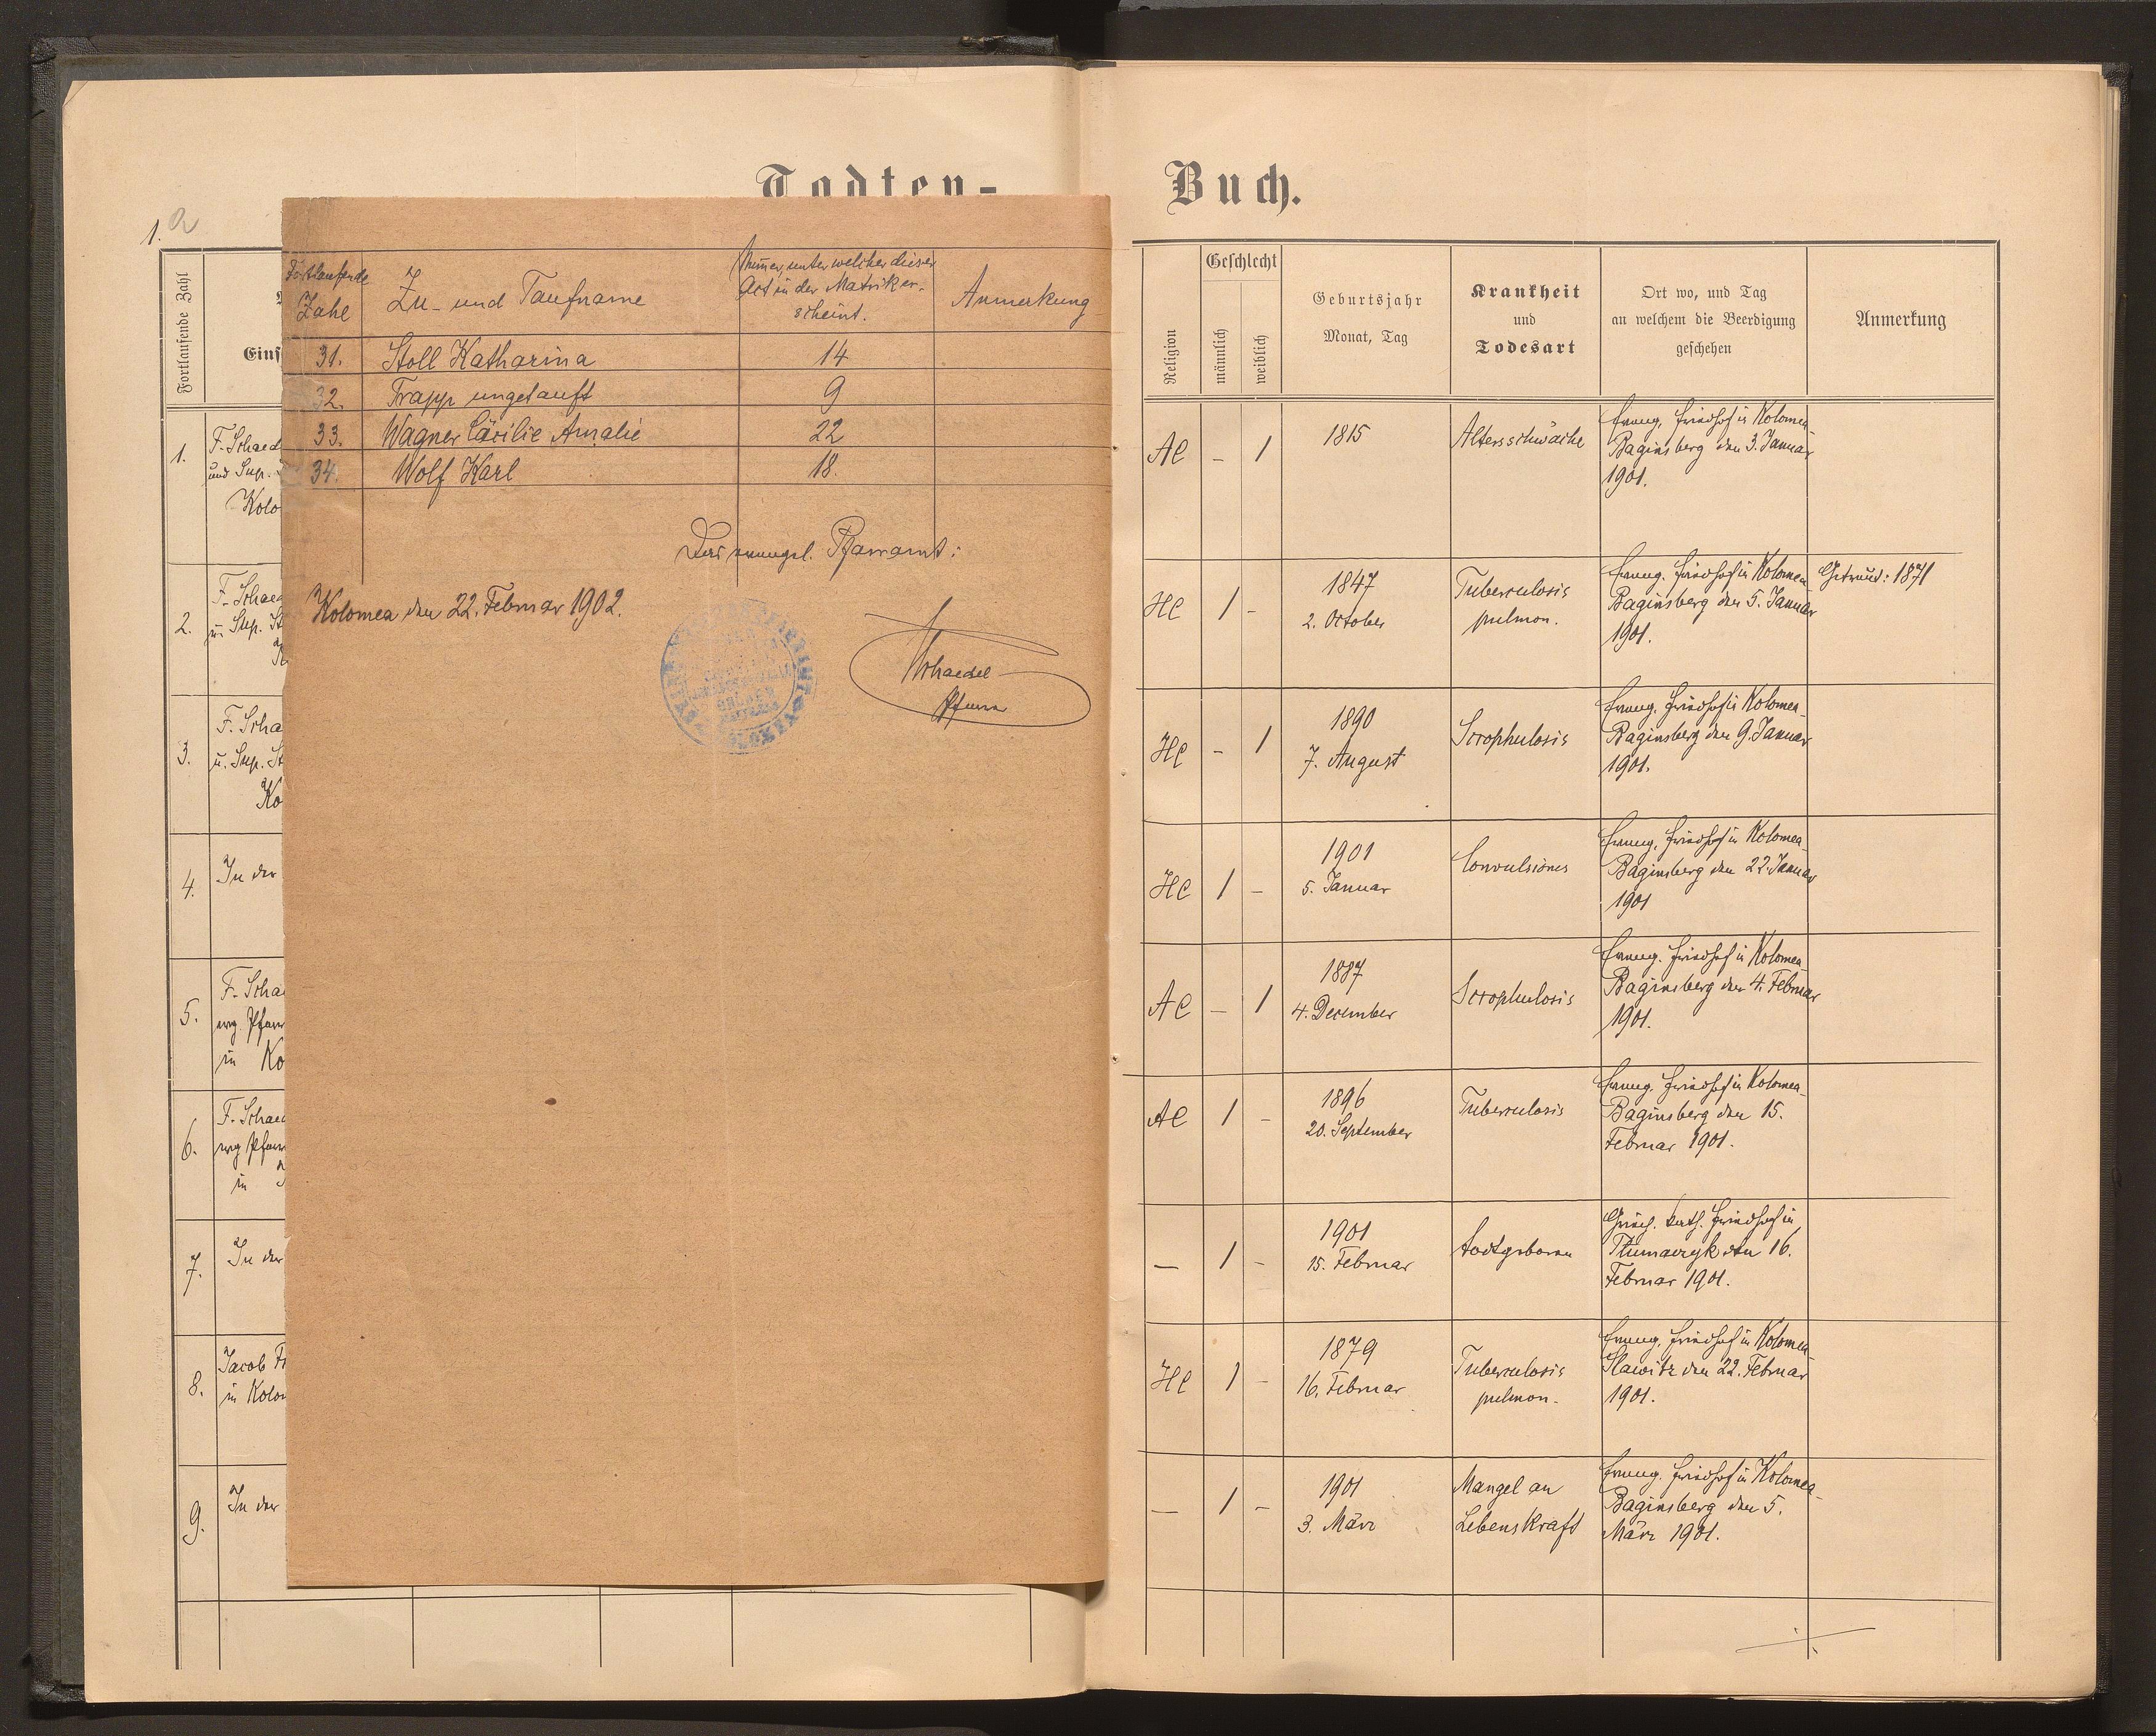 Todten-
1. a
Fortlaufende Zahl
Eins
1. F. Schaed
und Sup.
Kolo
2. F. Schaed
u. Sup. St
3. F. Scha
u. Sup. St
Ko
4. In der
5. F. Scha
evg. Pfarr
in Ko
6. F. Schaed
evg Pfarr
in
7. In der
8. Jacob Fr
in Kolom
9. In der
Fortlaufende Zahl
Zu- und Taufname
Numer, unter welcher dieser
Act in der Matrik er-
scheint.
Anmerkung
31. Stoll Katharina 14
32. Trapp ungetauft 9
33. Wagner Cäcilie Amalie 22
34. Wolf Karl 18.
Das evangel. Pfarramt:
Kolomea den 22. Februar 1902.
Schaedel
Pfarrer
Buch.
Religion
Geschlecht
männlich
weiblich
Geburtsjahr
Monat, Tag
Krankheit
und
Todesart
Ort wo, und Tag
an welchem die Beerdigung
geschehen
Anmerkung
AC – 1 1815 Altersschwäche Evang. Friedhof in Kolomea-
Baginsberg den 3. Januar
1901.
HC 1 – 1847
2. October
Tuberculosis
pulmon.
Evang. Friedhof in Kolomea
Baginsberg den 5. Januar
1901.
Getraut: 1871
HC – 1 1890
7. August
Scrophulosis
Evang. Friedhof in Kolomea-
Baginsberg den 9. Januar
1901.
HC 1 – 1901
5. Januar
Convulsiones
Evang. Friedhof in Kolomea-
Baginsberg den 22. Januar
1901
AC – 1 1887
4. December
Scrophulosis
Evang. Friedhof in Kolomea-
Baginsberg den 4. Februar
1901.
AC 1 – 1896
20. September
Tuberculosis
Evang. Friedhof in Kolomea-
Baginsberg den 15.
Februar 1901.
– 1 – 1901
15. Februar
todtgeboren
Griech. kath. Friedhof in
Tlumaczyk den 16.
Februar 1901.
HC 1 – 1879
16. Februar
Tuberculosis
pulmon.
Evang. Friedhof in Kolomea-
Slawitz den 22. Februar
1901.
– 1 – 1901
3. März
Mangel an
Lebenskraft
Evang. Friedhof in Kolomea-
Baginsberg den 5.
März 1901.